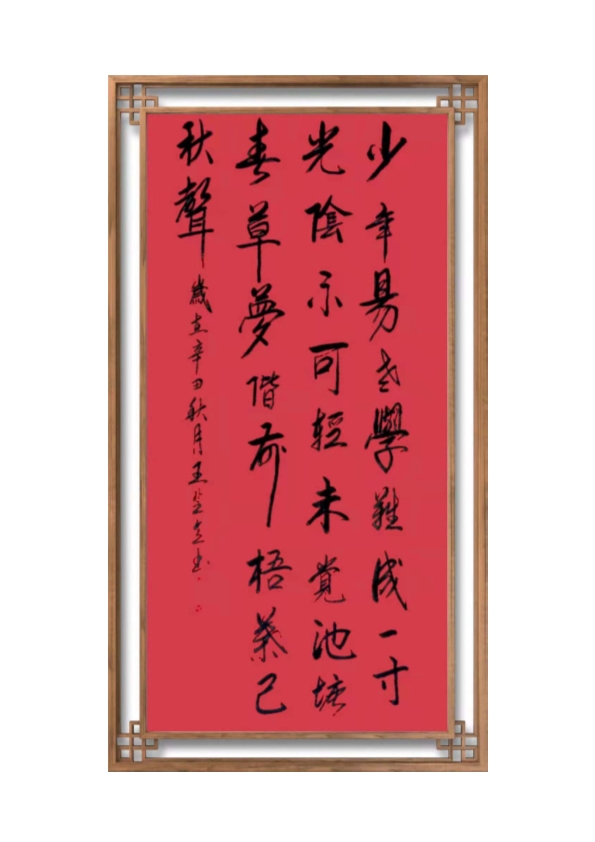 少年易老學難成一寸
光陰不可輕未覺池塘
春草夢偕前梧葉已
秋聲
歲在辛丑秋月王書